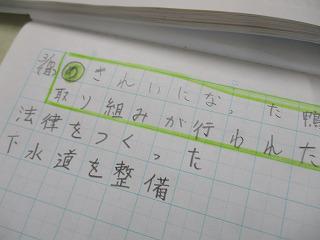 3/
め きれいになった鴨
取り組みが行われた
法律をつくった
下水道を整備